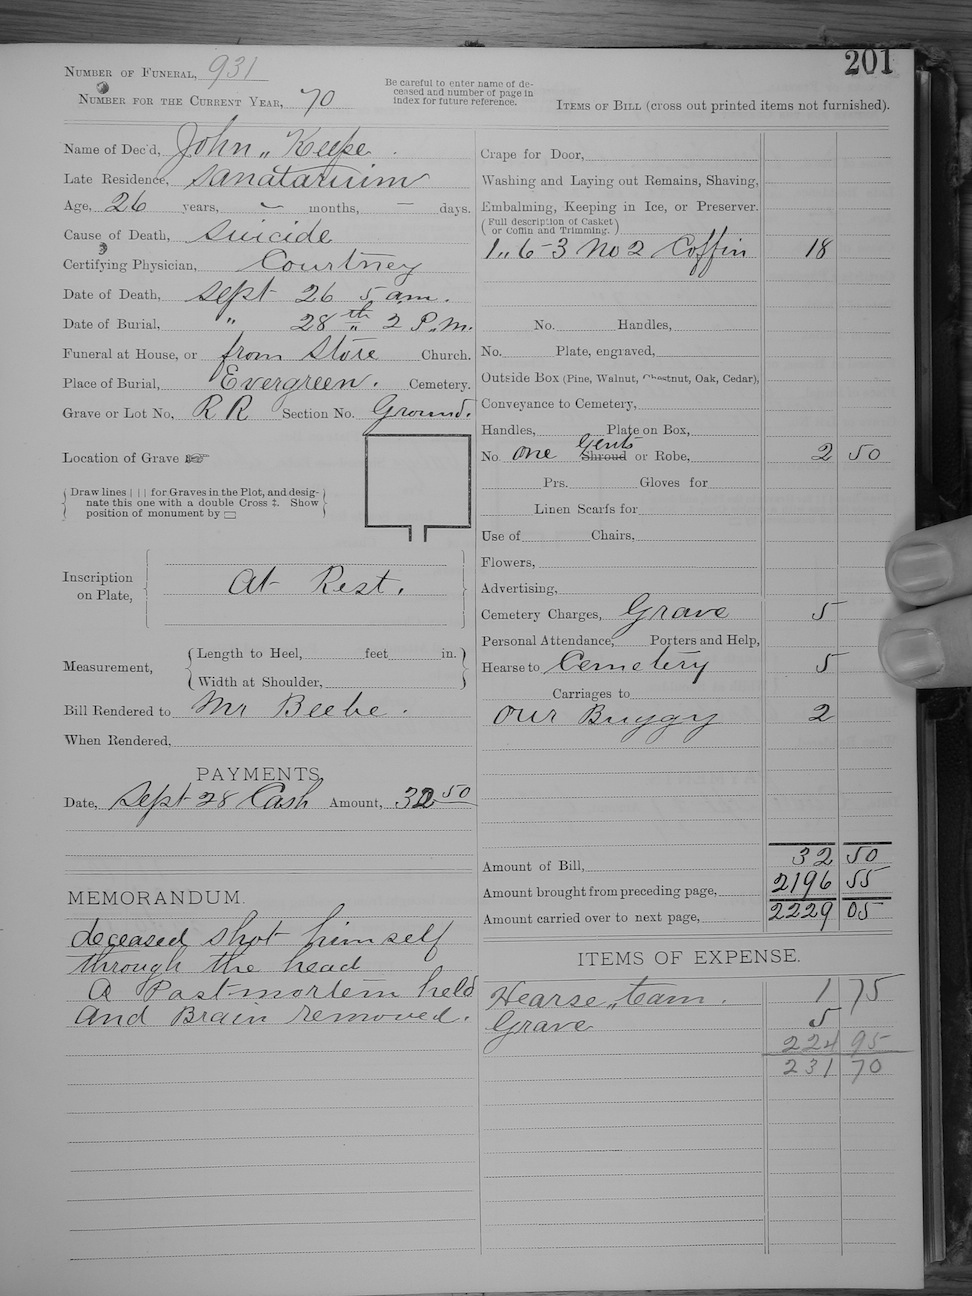 201
Number of Funeral, 931
Number for the Current Year, 70
Be careful to enter name of de-
ceased and number of page in
index for future reference.
Items of Bill (cross out printed items not furnished).
Name of Dec'd, John „ Keepe .
Late Residence, Sanatarium
Age, 26 years, ~ months, — days.
Cause of Death, Suicide
Certifying Physician, Courtney
Date of Death, Sept 26 5 am.
Date of Burial, " 28th „ 2 P.M.
Funeral at House, or from Store Church.
Place of Burial, Evergreen. Cemetery.
Grave or Lot No, R R Section No. Ground.
Location of Grave ☞
Draw lines | | | for Graves in the Plot, and desig-
nate this one with a double Cross ‡. Show
position of monument by ▭
Inscription
on Plate,
At Rest.
Measurement,
Length to Heel, feet in.
Width at Shoulder,
Bill Rendered to Mr Beebe.
When Rendered,
PAYMENTS.
Date, Sept 28 Cash Amount, 32 50
MEMORANDUM.
deceased shot himself
through the head
A Postmortem held
and Brain removed.
Crape for Door,
Washing and Laying out Remains, Shaving,
Embalming, Keeping in Ice, or Preserver.
(Full description of Casket
or Coffin and Trimming.)
1„ 6-3 No 2 Coffin 18
No. Handles,
No. Plate, engraved,
Outside Box (Pine, Walnut, Chestnut, Oak, Cedar),
Conveyance to Cemetery,
Handles, Plate on Box,
Gents
No. One Shroud or Robe, 2 50
Prs. Gloves for
Linen Scarfs for
Use of Chairs,
Flowers,
Advertising,
Cemetery Charges, Grave 5
Personal Attendance, Porters and Help,
Hearse to Cemetery 5
Carriages to
Our Buggy 2
Amount of Bill, 32 50
Amount brought from preceding page, 2196 55
Amount carried over to next page, 2229 05
ITEMS OF EXPENSE.
Hearse „ team . 1 75
Grave 5
224 95
231 70